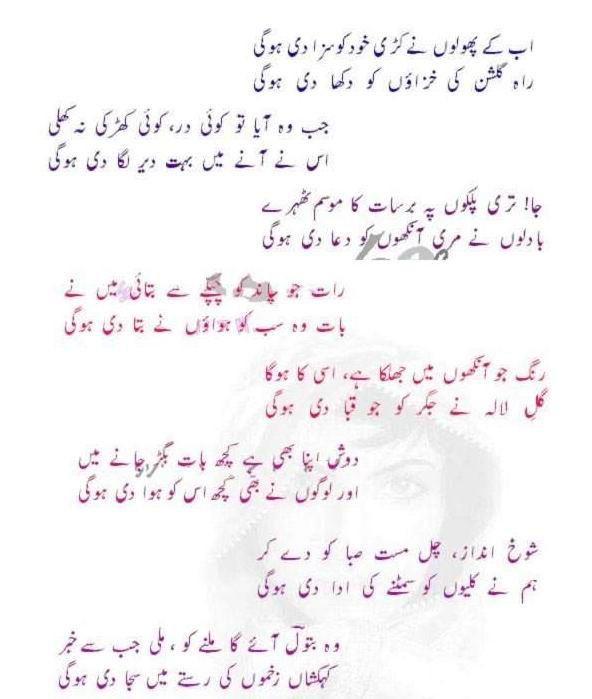 اب کے پھولوں نے کڑی خود کو سزا دی ہوگی
راہ گلشن کی خزاؤں کو دکھا دی ہوگی
جب وہ آیا تو کوئی در، کوئی کھڑکی نہ کھلی
اس نے آنے میں بہت دیر لگا دی ہوگی
جا! تری پلکوں پہ برسات کا موسم ٹھہرے
بادلوں نے مری آنکھوں کو دعا دی ہوگی
رات جو چاند کو چپکے سے بتائی میں نے
بات وہ سب کو ہواؤں نے بتا دی ہوگی
رنگ جو آنکھوں میں جھلکا ہے، اسی کا ہوگا
گلِ لالہ نے جگر کو جو قبا دی ہوگی
دوش اپنا بھی ہے کچھ بات بگڑ جانے میں
اور لوگوں نے بھی کچھ اس کو ہوا دی ہوگی
شوخ انداز، چل مست صبا کو دے کر
ہم نے کلیوں کو سمٹنے کی ادا دی ہوگی
وہ بتولؔ آئے گا ملنے کو، ملی جب سے خبر
کہکشاں زخموں کی رستے میں سجا دی ہوگی